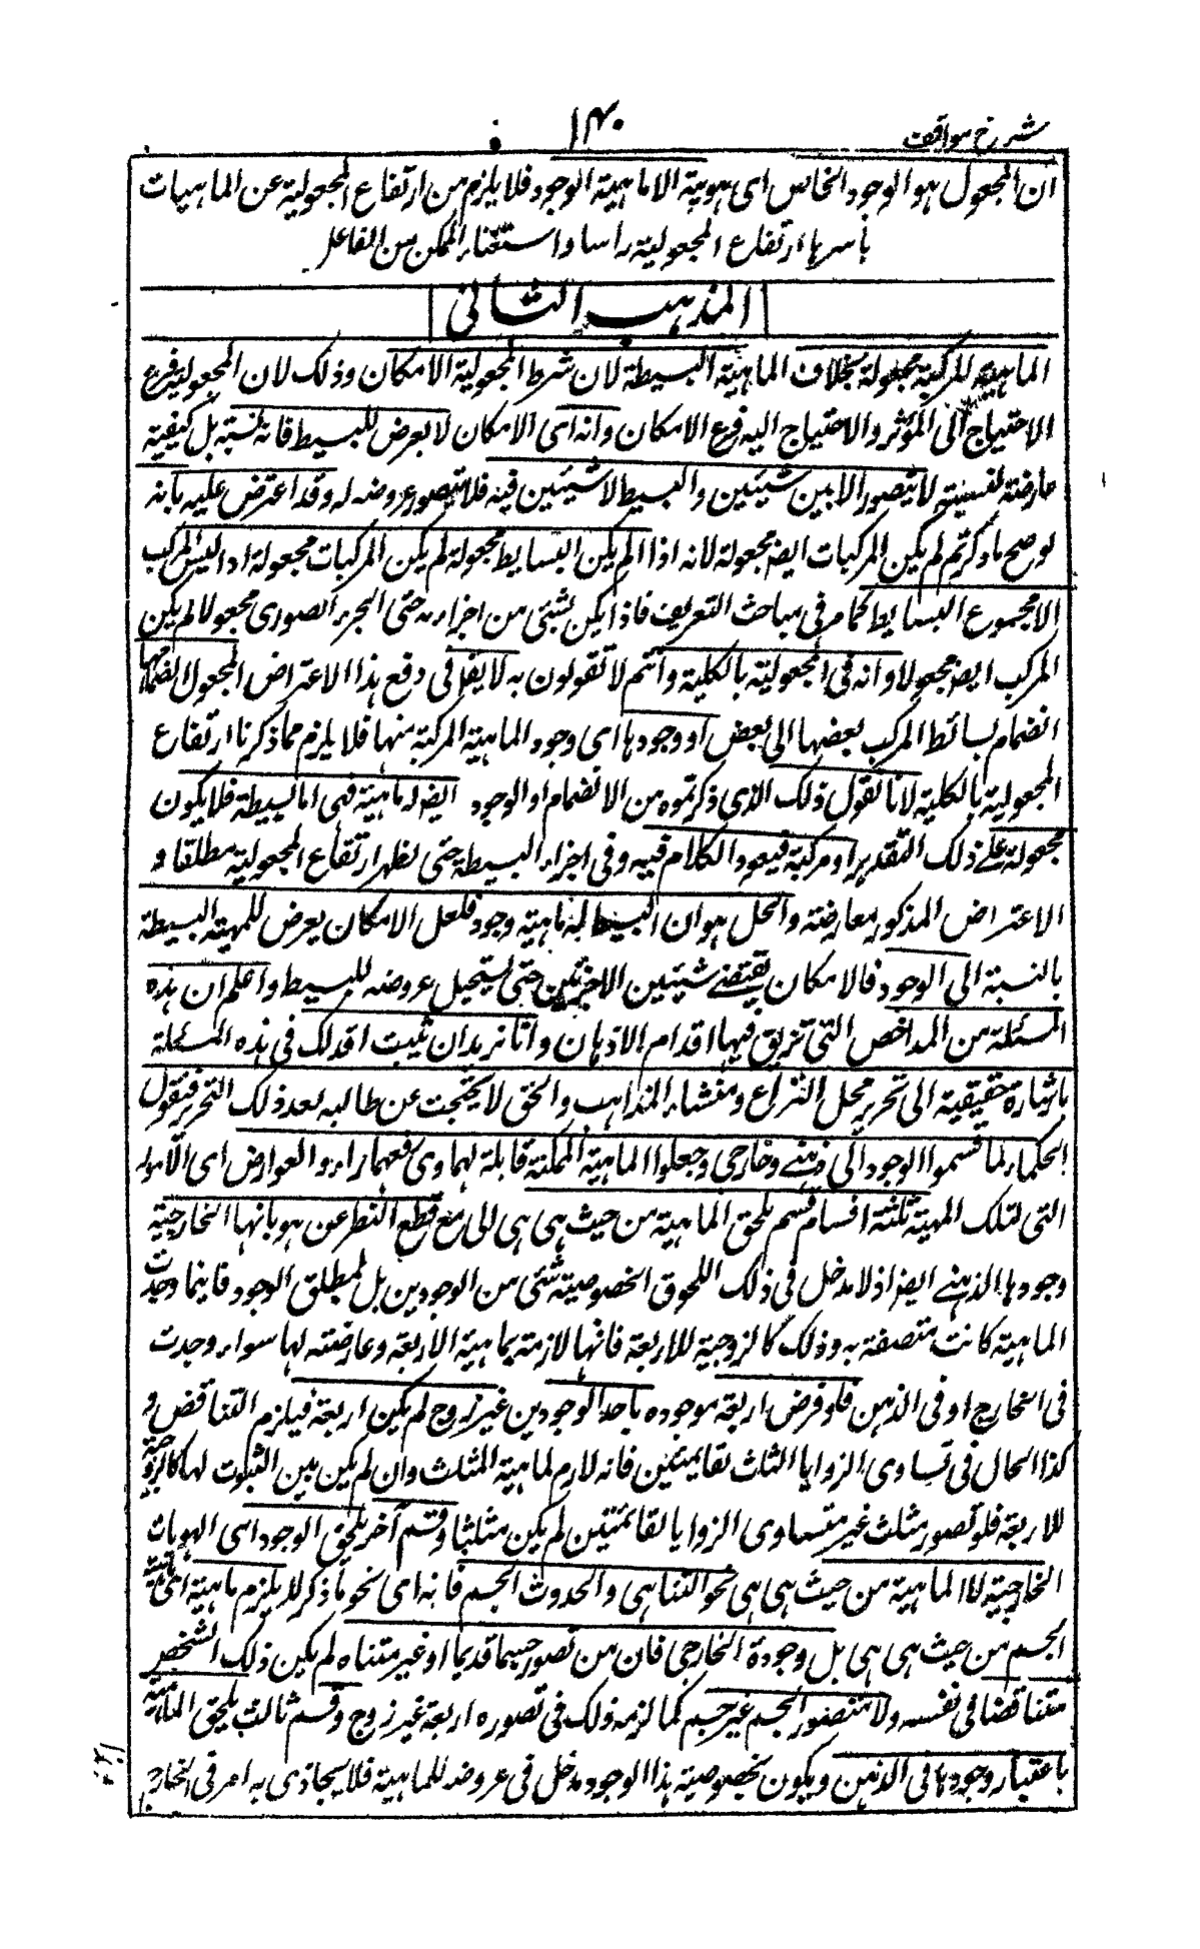 شرح مواقف
١٤٠
ان المجعول هو الوجود الخاص اى هوية الا ماهية الوجود فلا يلزم من ارتفاع المجعولية عن الماهيات
باسرها ارتفاع المجعولية راسا واستغناء الممكن من الفاعل
المذهب الثانى
الماهية المركبة مجعولة بخلاف الماهية البسيطة لان شرط المجعولية الامكان وذلك لان المجعولية فرع
الاحتياج الى المؤثر والاحتياج اليه فرع الامكان وانه اى الامكان لا يعرض للبسيط فانه نسبة بل كيفية
عارضة لنسبة لا يتصور الا بين شيئين والبسيط لا شيئين فيه فلا يتصور عروضه له وقد اعترض عليه بانه
لو صح ما ذكرتم لم يكن المركبات ايضا مجعولة لانه اذا لم يكن البسايط مجعولة لم يكن المركبات مجعولة اذ ليس المركب
الا مجموع البسايط كما مر فى مباحث التعريف فاذا لم يكن شئ من اجزاءه حتى الجزء الصورى مجعولا لم يكن
المركب ايضا مجعولا وانه نفى المجعولية بالكلية وانتم لا تقولون به لا يقال فى دفع هذا الاعتراض المجعول انضمامها
انضمام بسائط المركب بعضها الى بعض او وجودها اى وجود الماهية المركبة منها فلا يلزم مما ذكرنا ارتفاع
المجعولية بالكلية لانا نقول ذلك الذى ذكرتموه من الانضمام او الوجود ايضا له ماهية فهى اما بسيطة فلا يكون
مجعولة على ذلك التقدير او مركبة فيعود الكلام فيه وفى اجزاءه البسيطة حتى يظهر ارتفاع المجعولية مطلقا و
الاعتراض المذكور معارضة والحل هو ان البسيط له ماهية وجود فلعل الامكان يعرض للمهية البسيطة
بالنسبة الى الوجود فالامكان يقتضى شيئين لا جزئين حتى يستحيل عروضه للبسيط واعلم ان هذه
المسئلة من المداحض التى تزلق فيها اقدام الاذهان وانا نريد ان نثبت اقدامك فى هذه المسئلة
باشارة حقيقية الى تحرير محل النزاع ومنشاء المذاهب والحق لا يحتجب عن طالبه بعد ذلك التحرير فنقول
الحكماء لما قسموا الوجود الى ذهنى وخارجى وجعلوا الماهية الممكنة قابلة لهما وى فعهما راءوا العوارض اى الامور
التى لتلك المهية ثلثة اقسام قسم يلحق الماهية من حيث هى هى اى مع قطع النظر عن هوياتها الخارجية
وجودها الذهنى ايضا اذ لا مدخل فى ذلك اللحوق الخصوصية شئ من الوجودين بل لمطلق الوجود فاينما وجدت
الماهية كانت متصفة به وذلك كالزوجية للاربعة فانها لازمة لماهية الاربعة وعارضته لها سواء وجدت
فى الخارج او فى الذهن فلو فرض اربعة موجوده باحد الوجودين غير زوج لم يكن اربعة فيلزم التناقض و
كذا الحال فى تساوى الزوايا الثلث لقائمتين فانه لازم لماهية المثلث وان لم يكن بين الثبوت لها كالزوجية
للاربعة فلو تصور مثلث غير متساوى الزوايا لقائمتين لم يكن مثلثا وقسم آخر يلحق الوجود اى الهويات
الخارجية لا الماهية من حيث هى هى نحو التناهى والحدوث الجسم فانه اى نحو ما ذكر لا يلزم ماهية اى ماهية
الجسم من حيث هى هى بل وجودة الخارجى فان من تصور جسما قديما او غير متناه لم يكن ذلك الشخص
متناقضا فى نفسه ولا متصور الجسم غير جسم كما لزمه ذلك فى تصوره اربعة غير زوج وقسم ثالث يلحق الماهية
باعتبار وجودها فى الذهن ويكون لخصوصية هذا الوجود مدخل فى عروضه للماهية فلا يحاذى به امر فى الخارج